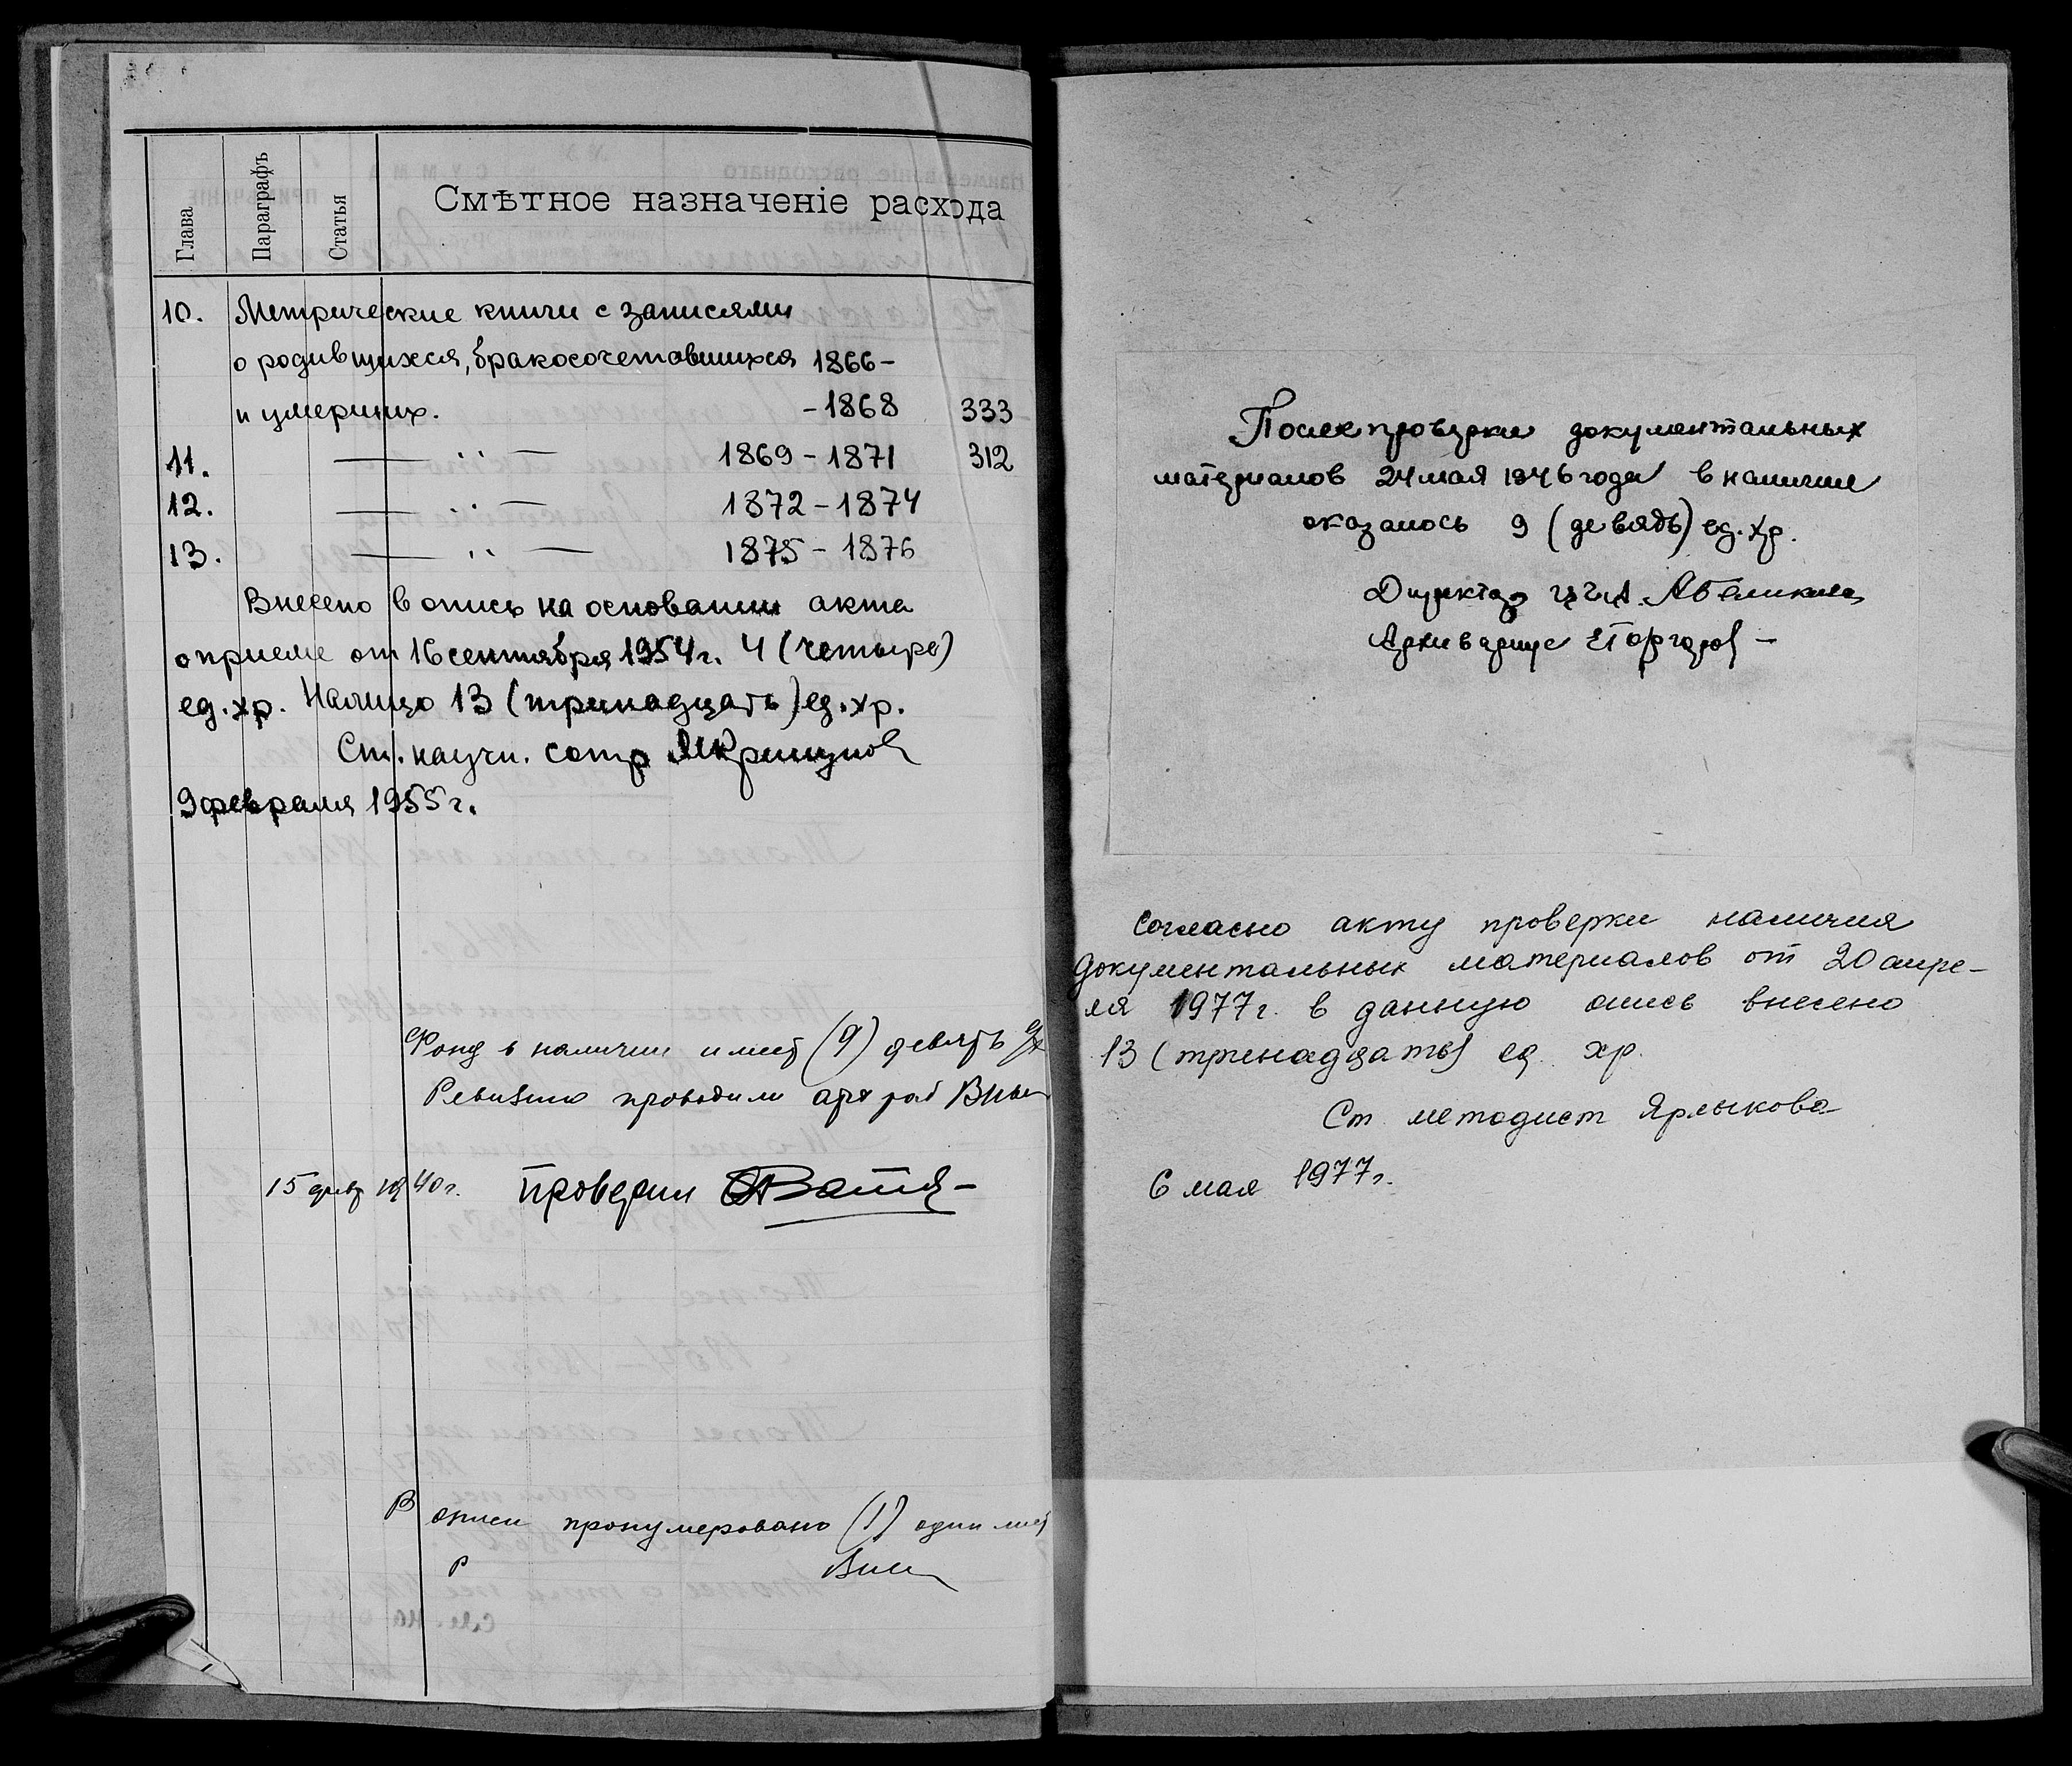 Глава
Параграфъ
Статья
Смѣтное назначеніе расхода
10. Метрические книги с записями
о родившихся, бракосочетавшихся 1866-
и умерших. -1868 333
11. — ·· — 1869-1871 312
12. — ·· — 1872-1874
13. — ·· — 1875-1876
Внесено в опись на основании акта
о приеме от 16 сентября 1954г. 4 (четыре)
ед.хр. Налицо 13 (тринадцать) ед.хр.
Ст. научн. сотр
9 февраля 1955г.
Фонд в наличии имеет (9) девять
Ревизию проводили арх раб
15 февр 1940г. Проверил
В описи пронумеровано (1) один лист
После проверки документальных
материалов 24 мая 1946 года в наличии
оказалось 9 (девядь) ед. хр.
Директор
Архивариус
Согласно акту проверки наличия
документальных материалов от 20 апре-
ля 1977г. в данную опись внесено
13 (тринадцать) ед. хр.
Ст. методист Ярлыкова
6 мая 1977г.